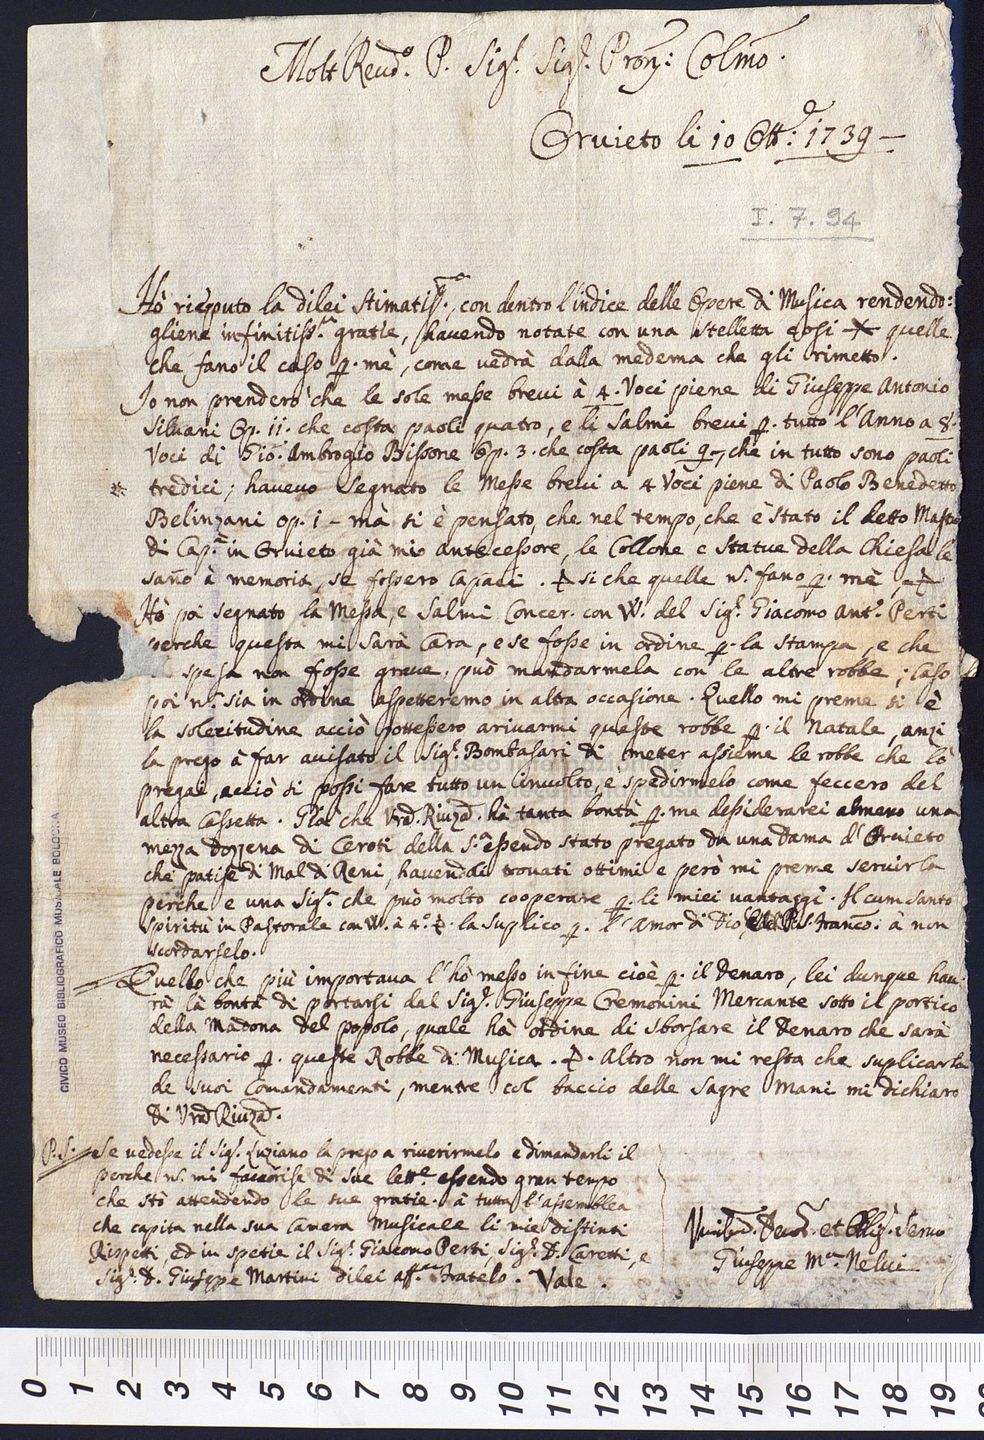 Molt Reud.º P. Sig.r Sig.r Pron.: Colmo.
Orvieto li 10 Ott.: 1739 —
I. 7. 94
Hò riceputo la dilei stimatiss.ma, con dentro l'indice delle Opere di Musica rendendo:
gliene infinitiss.me gratie, havendo notate con una stelletta cosi quelle
che fano il caso p. mè, come vedrà dalla medema che gli rimetto.
Io non prenderò che le sole messe brevi à 4. Voci piene di Giuseppe Antonio
Silvani Op. 11. che costa paoli quatro, e li Salmi brevi p. tutto l'Anno a 8.
Voci di Gio: Ambrogio Bissone Op. 3. che costa paoli 9—, che in tutto sono paoli
tredici; havevo segnato le Messe brevi a 4 Voci piene di Paolo Benedetto
Belinzani op. 1 – mà si è pensato, che nel tempo, che è stato il detto Mastro
di Cap.a in Orvieto già mio antecessore, le Collone e Statue della Chiesa le
sano à memoria, se fossero capaci. si che quelle n. fano p. mè,
Hò poi segnato la Messa, e Salmi Concer. con VV. del Sig.r Giacomo Ant.º Perti
perche questa mi sarà cara, e se fosse in ordine p. la stampa, e che
spesa non fosse greve, può mandarmela con le altre robbe; caso
poi n. sia in ordine aspetteremo in altra occasione. Quello mi preme si è
la solecitudine acciò pottessero arivarmi queste robbe p. il Natale, anzi
la prego à far avisato il Sig.r Bombasari di meter assieme le robbe che lò
pregai, acciò si possi fare tutto un'involto, e spedirmelo come feccero del
altra Cassetta. Già che Vrà Riuza hà tanta bontà p. me dessiderarei almeno una
mezza dozzena di Ceroti della S.a essendo stato pregato da una Dama d'Orvieto
che patise di Mal di Reni, havendoli trovati ottimi e però mi preme servirla
perche e una Sig.ra che può molto cooperare p. li miei vantaggi. Il cum Santo
Spiritù in Pastorale con VV. à 4.º la suplico p. l'amor di Dio, e del P. S. Franco. à non
scordarselo.
Quello che più importava l'hò messo in fine cioè p. il denaro, lei dunque hav
rà la bontà di portarsi dal Sig.r Giuseppe Cremonini Mercante sotto il portico
della Madona del popolo, quale hà ordine di sborsare il denaro che sarà
necessario p. queste Robbe di Musica. Altro non mi resta che suplicarla
de suoi Comandamenti, mentre col baccio delle sagre Mani mi dichiaro
di Vrà Riuza.
P.S. Se vedesse il Sig.r Luziano la prego a riverirmelo e dimandarli il
perche n. mi favorise di sue lett.e essendo gran tempo
che stò attendendo le sue gratie. à tutta l'assemblea
che capita nella sua Camera Musicale li mie distinti
Rispetti, ed in spetie il Sig.r Giacomo Perti, Sig.r D. Caretti, e
Sig.r D. Giuseppe Martini dilei aff.mo Fratelo. Vale.
Umil. Devot. et Obblig. Servo
Giuseppe M.a Nelvi
CIVICO MUSEO BIBLIOGRAFICO MUSICALE BOLOGNA
0 1 2 3 4 5 6 7 8 9 10 11 12 13 14 15 16 17 18 19